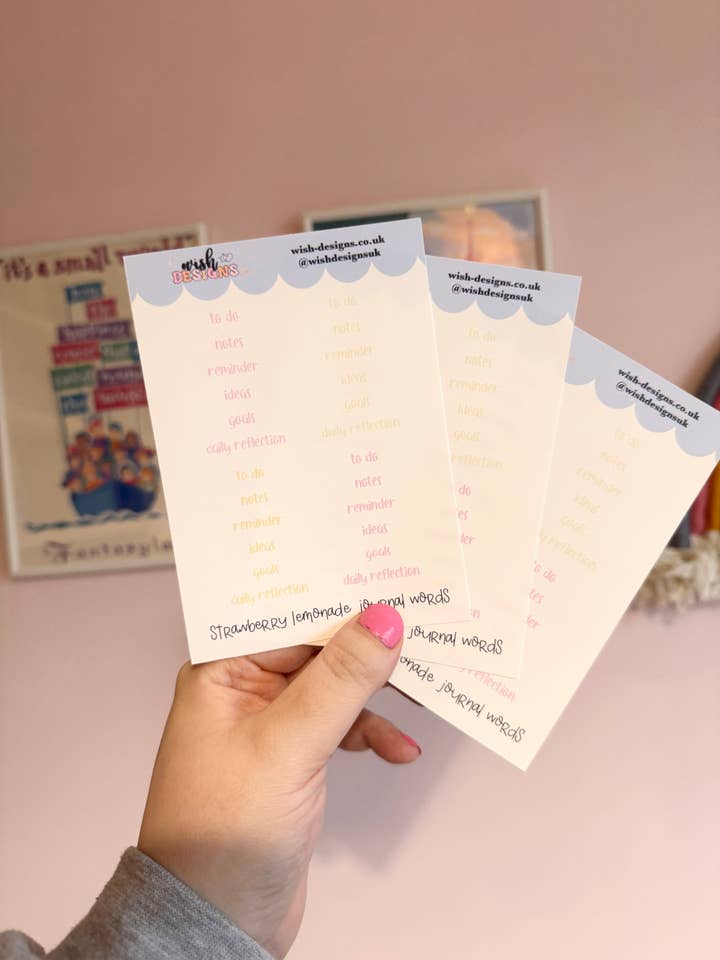 "it's a small world"
Fantasyla
wish
DESIGNS
wish-designs.co.uk
@wishdesignsuk
to do
notes
reminder
ideas
goals
daily reflection
to do
notes
reminder
ideas
goals
daily reflection
to do
notes
reminder
ideas
goals
daily reflection
to do
notes
reminder
ideas
goals
daily reflection
strawberry lemonade journal words
wish-designs.co.uk
@wishdesignsuk
to do
notes
reminder
ideas
goals
reflection
do
es
der
journal words
wish-designs.co.uk
@wishdesignsuk
to do
notes
reminder
ideas
goals
daily reflection
to do
notes
der
reflection
onade journal words